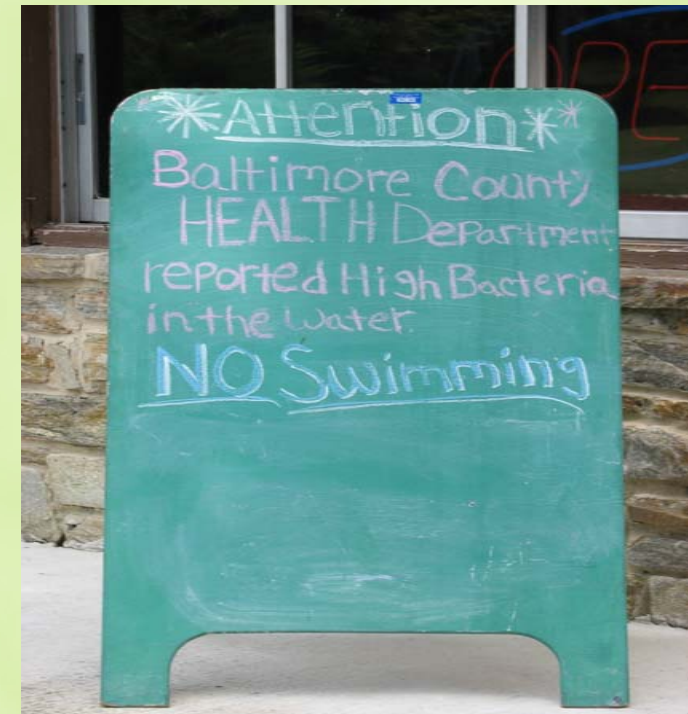 OPE
*Attention**
Baltimore County
HEALTH Department
reported High Bacteria
in the water.
NO Swimming